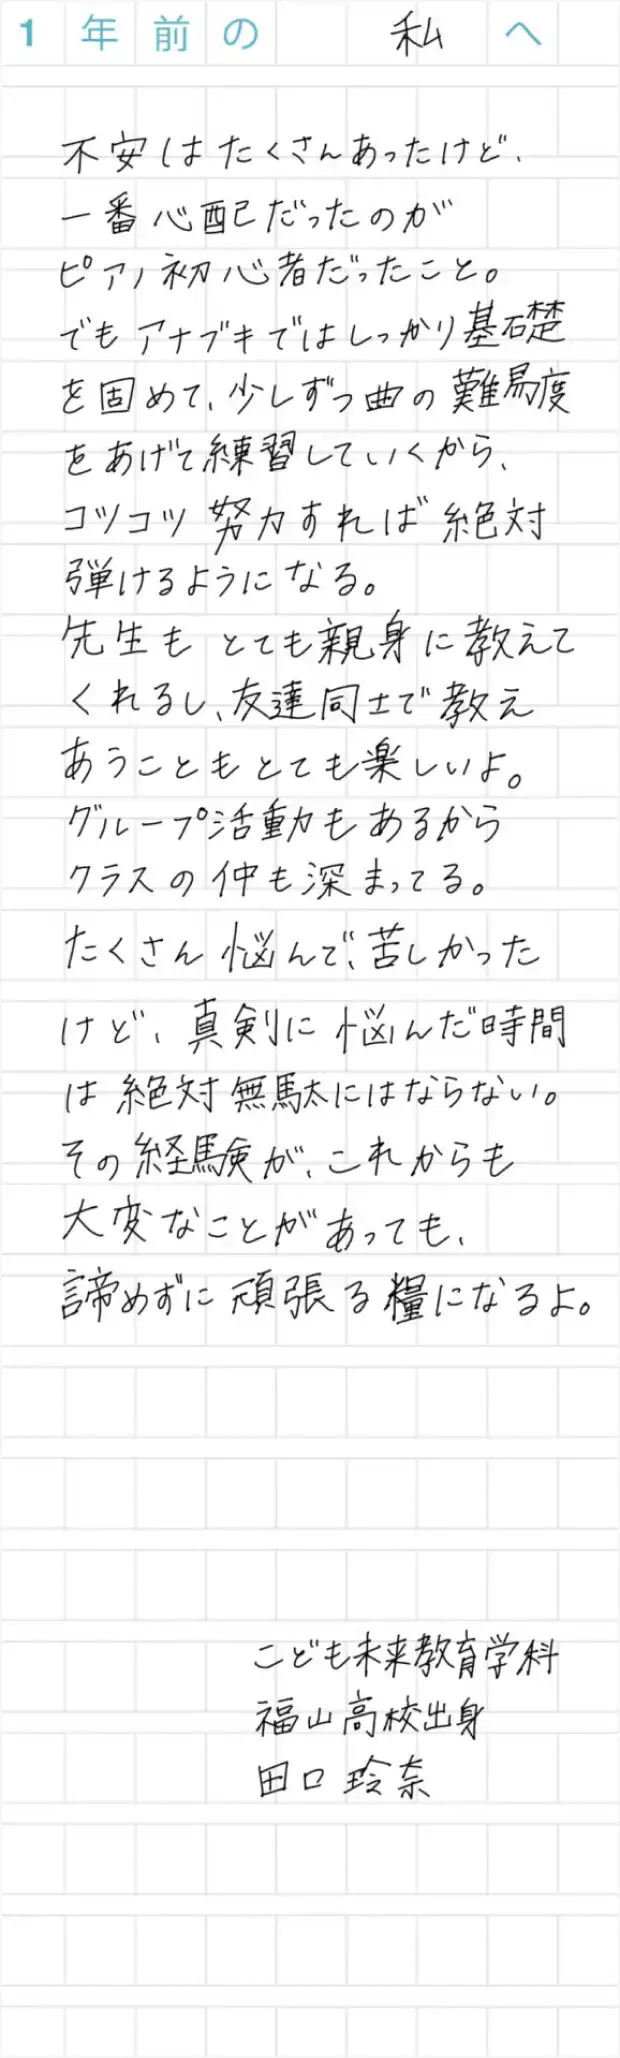 1年前の 私 へ
不安はたくさんあったけど、
一番心配だったのが
ピアノ初心者だったこと。
でもアナブキではしっかり基礎
を固めて、少しずつ曲の難易度
をあげて練習していくから、
コツコツ努力すれば絶対
弾けるようになる。
先生もとても親身に教えて
くれるし、友達同士で教え
あうこともとても楽しいよ。
グループ活動もあるから
クラスの仲も深まってる。
たくさん悩んで、苦しかった
けど、真剣に悩んだ時間
は絶対無駄にはならない。
その経験が、これからも
大変なことがあっても、
諦めずに頑張る糧になるよ。
こども未来教育学科
福山高校出身
田口玲奈